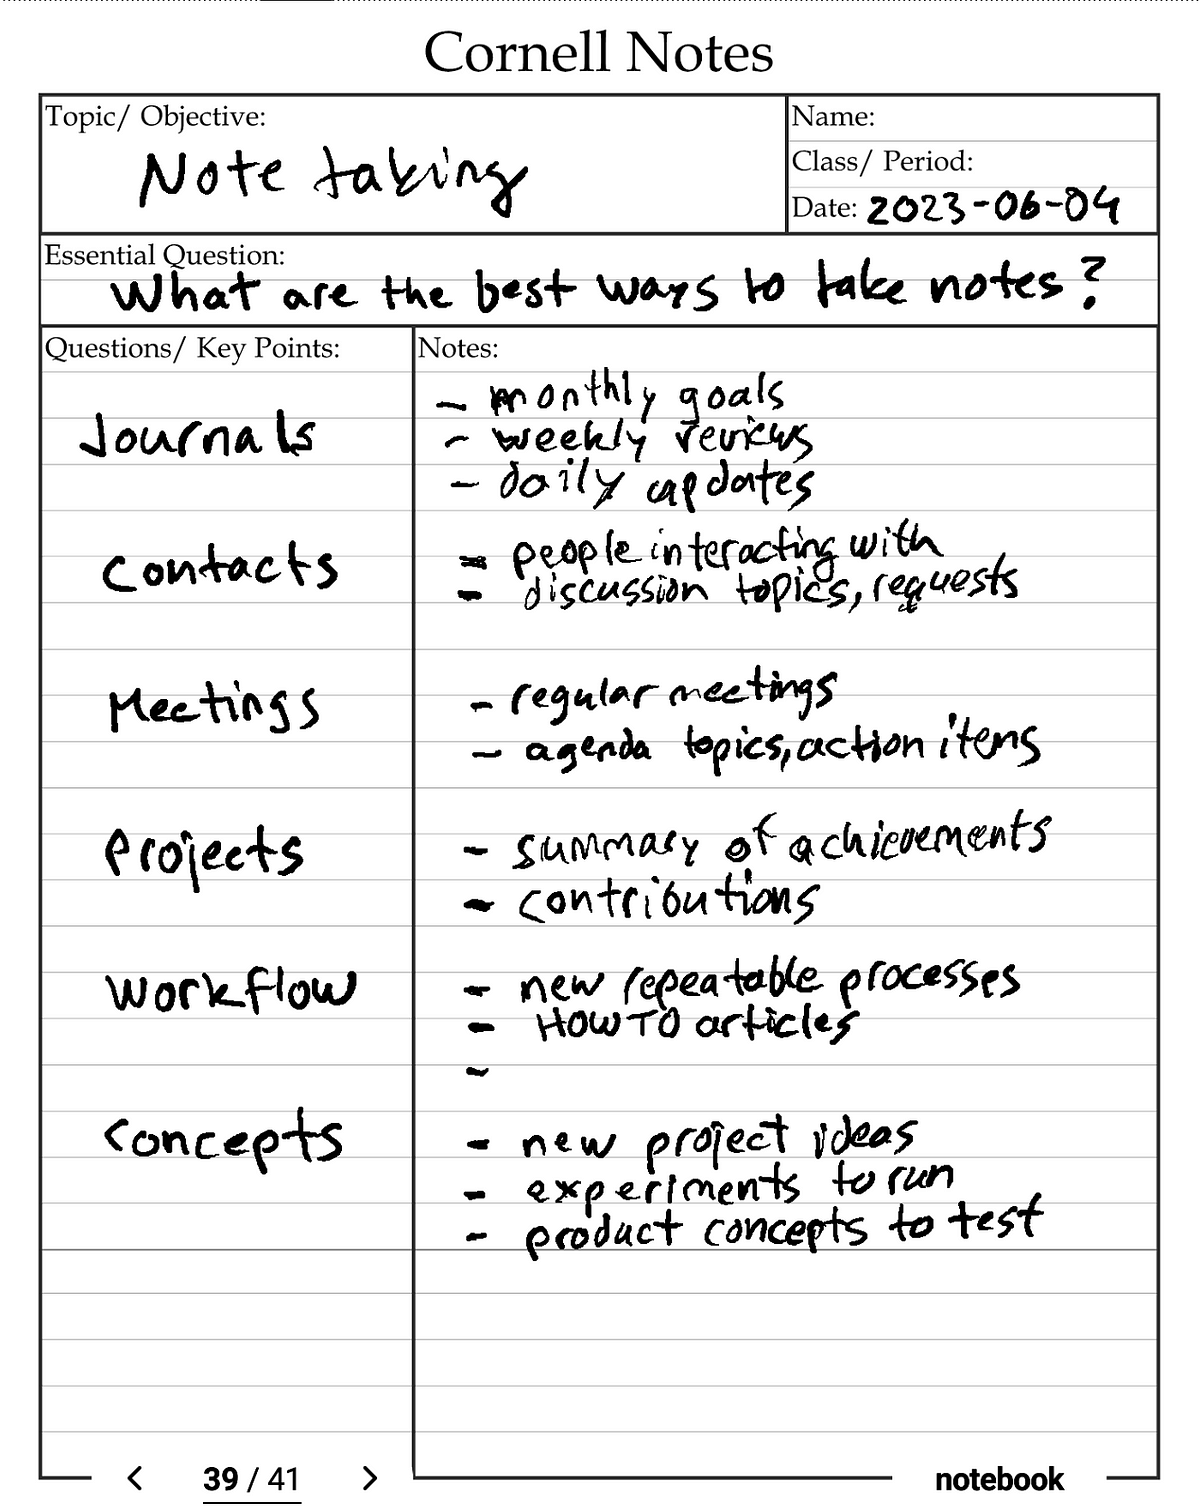 Cornell Notes
Topic/ Objective:
Note taking
Name:
Class/ Period:
Date: 2023-06-04
Essential Question:
What are the best ways to take notes?
Questions/ Key Points:
Notes:
Journals
- monthly goals
- weekly reviews
- daily updates
Contacts
- people interacting with
- discussion topics, requests
Meetings
- regular meetings
- agenda topics, action items
Projects
- summary of achievements
- contributions
Workflow
- new repeatable processes
- HOWTO articles
-
Concepts
- new project ideas
- experiments to run
- product concepts to test
< 39 / 41 >
notebook